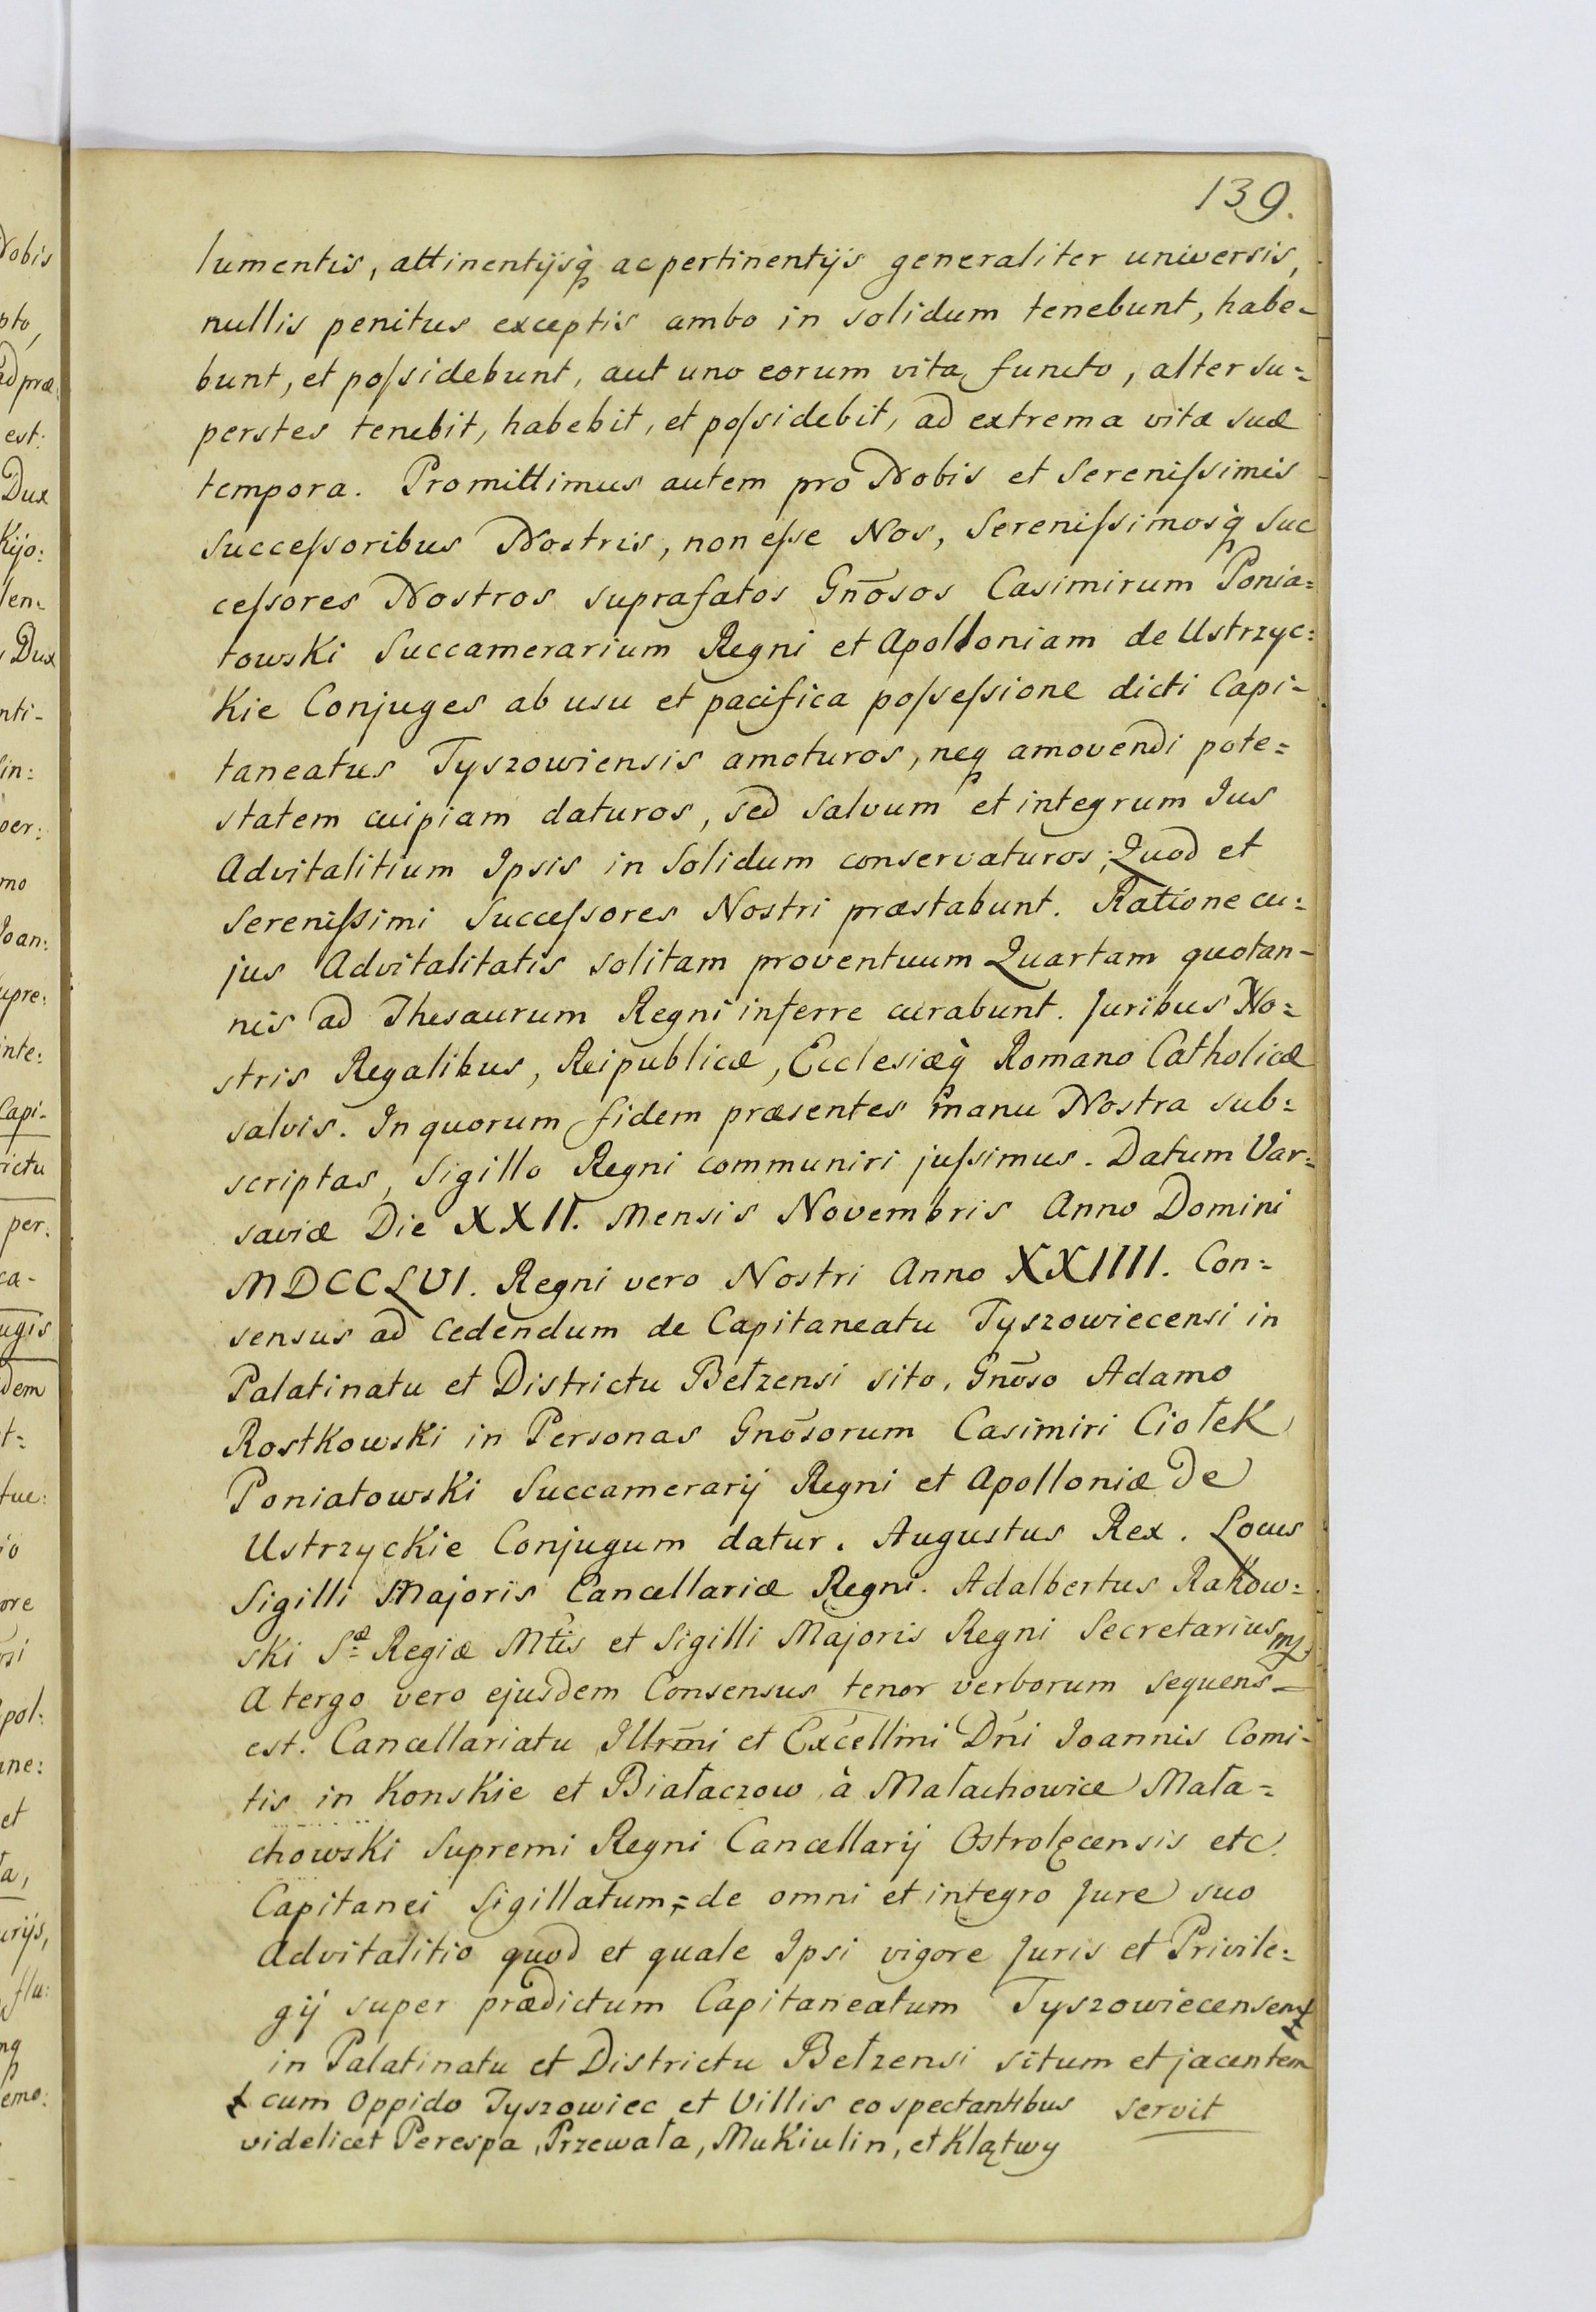 139.
lumentis, attinentijsq̀ ac pertinentijs generaliter universis,
nullis penitus exceptis ambo in solidum tenebunt, habe-
bunt, et poſsidebunt, aut uno eorum vita functo, alter su=
perstes tenebit, habebit, et poſsidebit, ad extrema vitæ suæ
tempora. Promittimus autem pro Nobis et Sereniſsimis
Succeſsoribus Nostris, non eſse Nos, Sereniſsimosq̀ Suc
ceſsores Nostros suprafatos Gnōsos Casimirum Ponia=
towski Succamerarium Regni et Apolloniam de Ustrzyc=
Kie Conjuges ab usu et pacifica poſseſsione dicti Capi-
taneatus Tyszowiensis amoturos, neq amovendi pote=
statem cuipiam daturos, sed salvum et integrum Jus
Advitalitium Ipsis in Solidum conservaturos; Quod et
Sereniſsimi Succeſsores Nostri præstabunt. Ratione cu=
jus Advitalitatis solitam proventuum Quartam quotan-
nis ad Thesaurum Regni inferre curabunt. Juribus No=
stris Regalibus, Reipublicæ, Ecclesiæq̀ Romano Catholicæ
salvis. In quorum fidem præsentes manu Nostra sub=
scriptas, Sigillo Regni communiri juſsimus. Datum Var=
saviæ Die XXII. Mensis Novembris Anno Domini
MDCCLVI. Regni vero Nostri Anno XXIIII. Con=
sensus ad cedendum de Capitaneatu Tyszowiecensi in
Palatinatu et Districtu Bełzensi sito, Gnōso Adamo
Rostkowski in Personas Gnōsorum Casimiri Ciołek
Poniatowski Succamerarij Regni et Apolloniæ De
Ustrzyckie Conjugum datur. Augustus Rex. Locus
Sigilli Majoris Cancellariæ Regni. Adalbertus Rakow=
ski Sæ Regiæ Mtis et Sigilli Majoris Regni Secretarius mp
A tergo vero ejusdem Consensus tenor verborum sequens
est. Cancellariatu Illrm̄i et Excellmi Dni Joannis Comi-
tis in Konskie et Białaczow à Małachowice Mała=
chowski Supremi Regni Cancellarij Ostrołęcensis etc.
Capitanei Sigillatum,= de omni et integro Jure suo
Advitalitio quod et quale Ipsi vigore Juris et Privile=
gij super prædictum Capitaneatum Tyszowiecensem
in Palatinatu et Districtu Bełzensi situm et jacentem
cum Oppido Tyszowiec et Villis eo spectantibus servit
videlicet Perespa, Przewała, Mukiulin, et Klątwy